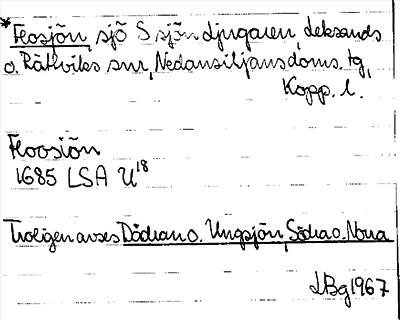 *Flosjön, sjö S sjön Ljugaren, Leksands
o. Rättviks snr, Nedansiljans doms. tg,
Kopp. l.
Floosiön
1685 LSA U18
Troligen avses Dödran o. Ungsjön, Södra o. Norra
LBg 1967